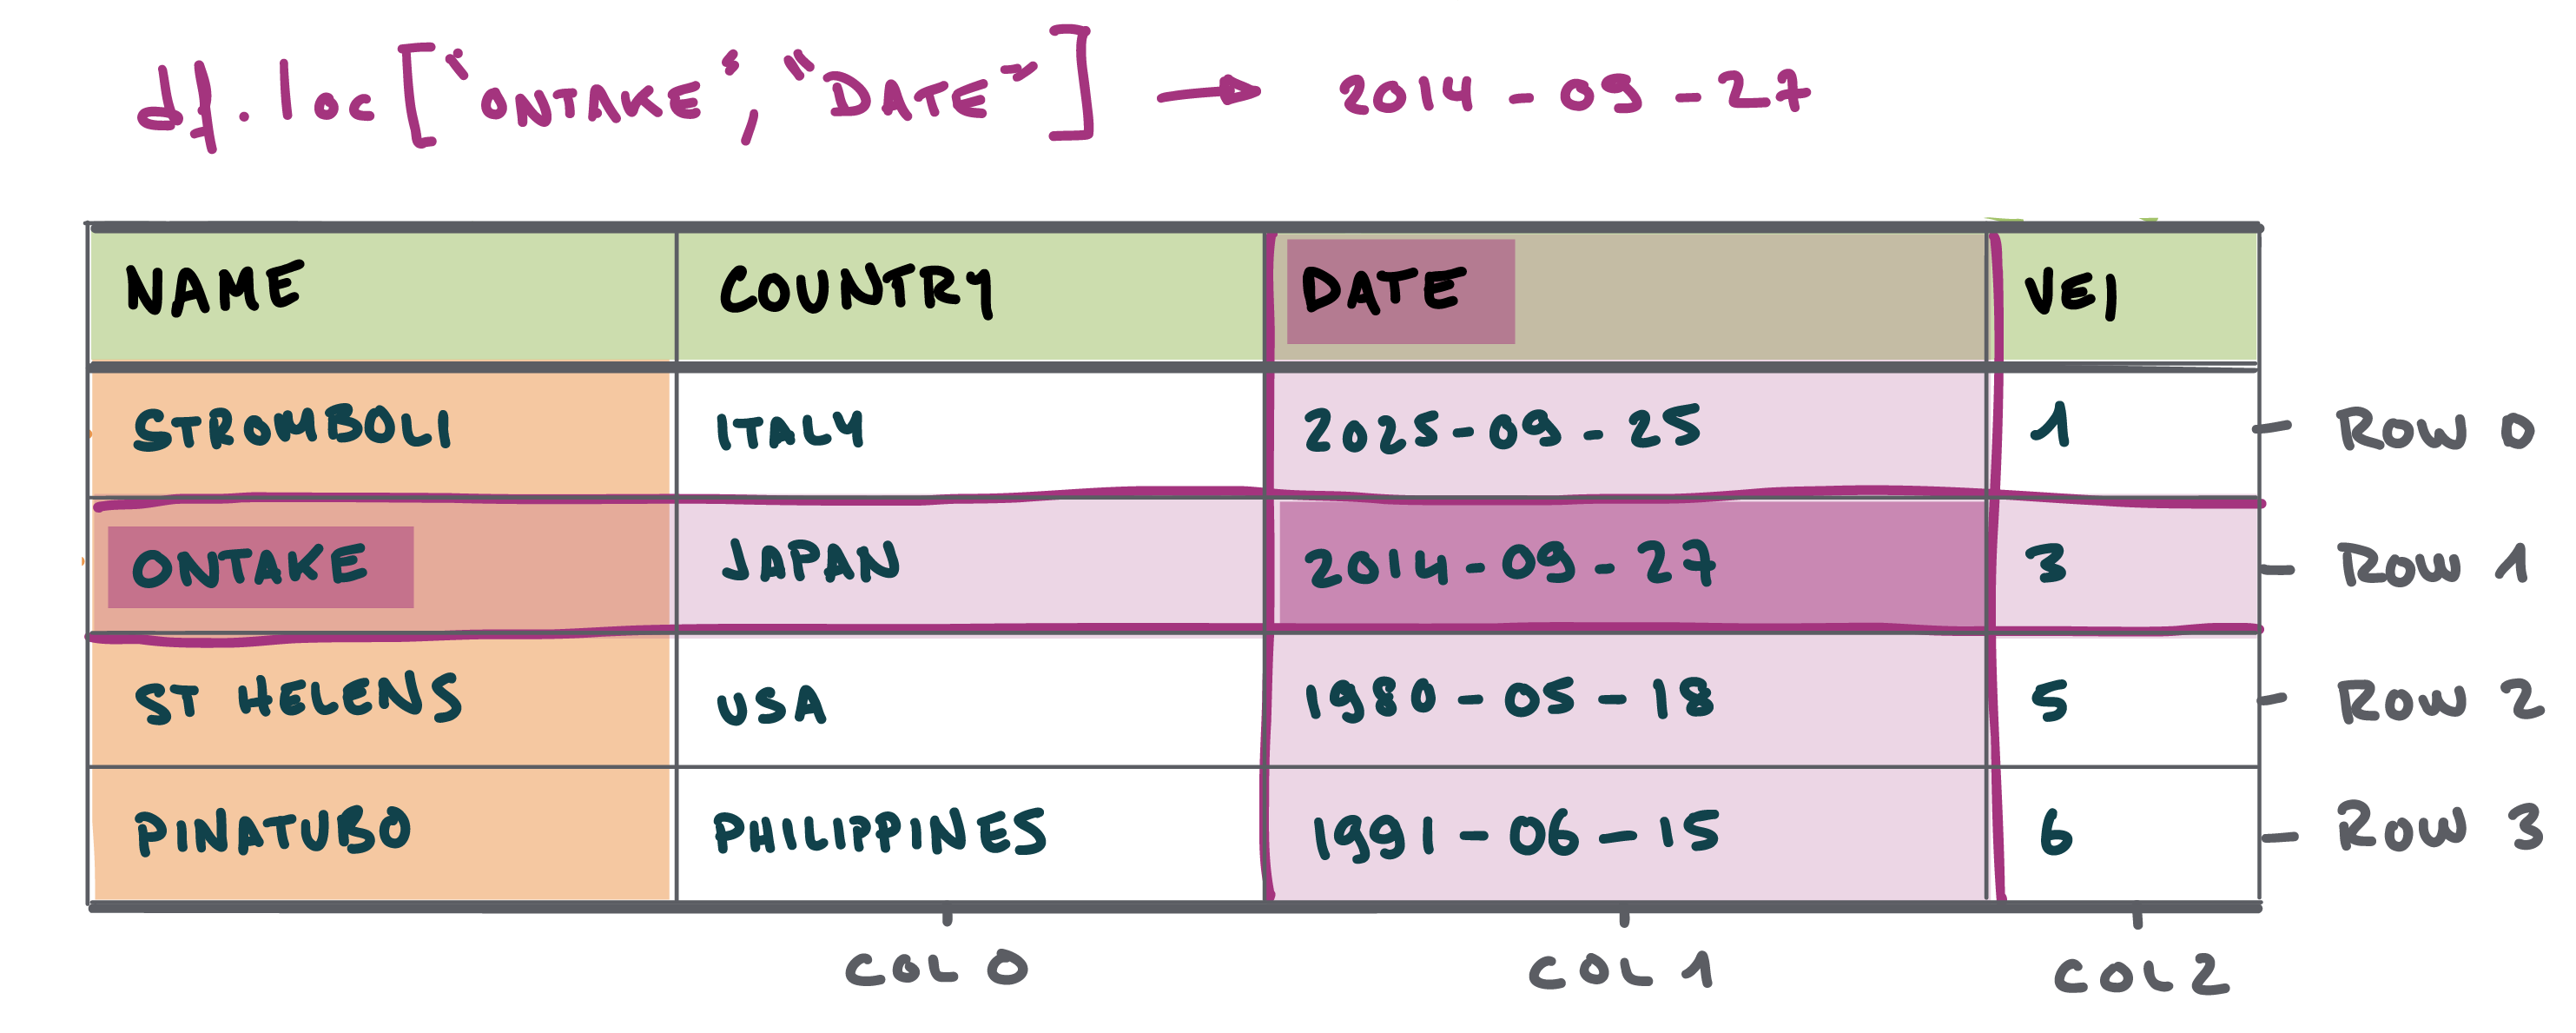 df.loc["ONTAKE", "DATE"] → 2014-09-27
NAME COUNTRY DATE VEI
STROMBOLI ITALY 2025-09-25 1 ROW 0
ONTAKE JAPAN 2014-09-27 3 ROW 1
ST HELENS USA 1980-05-18 5 ROW 2
PINATUBO PHILIPPINES 1991-06-15 6 ROW 3
COL 0 COL 1 COL 2